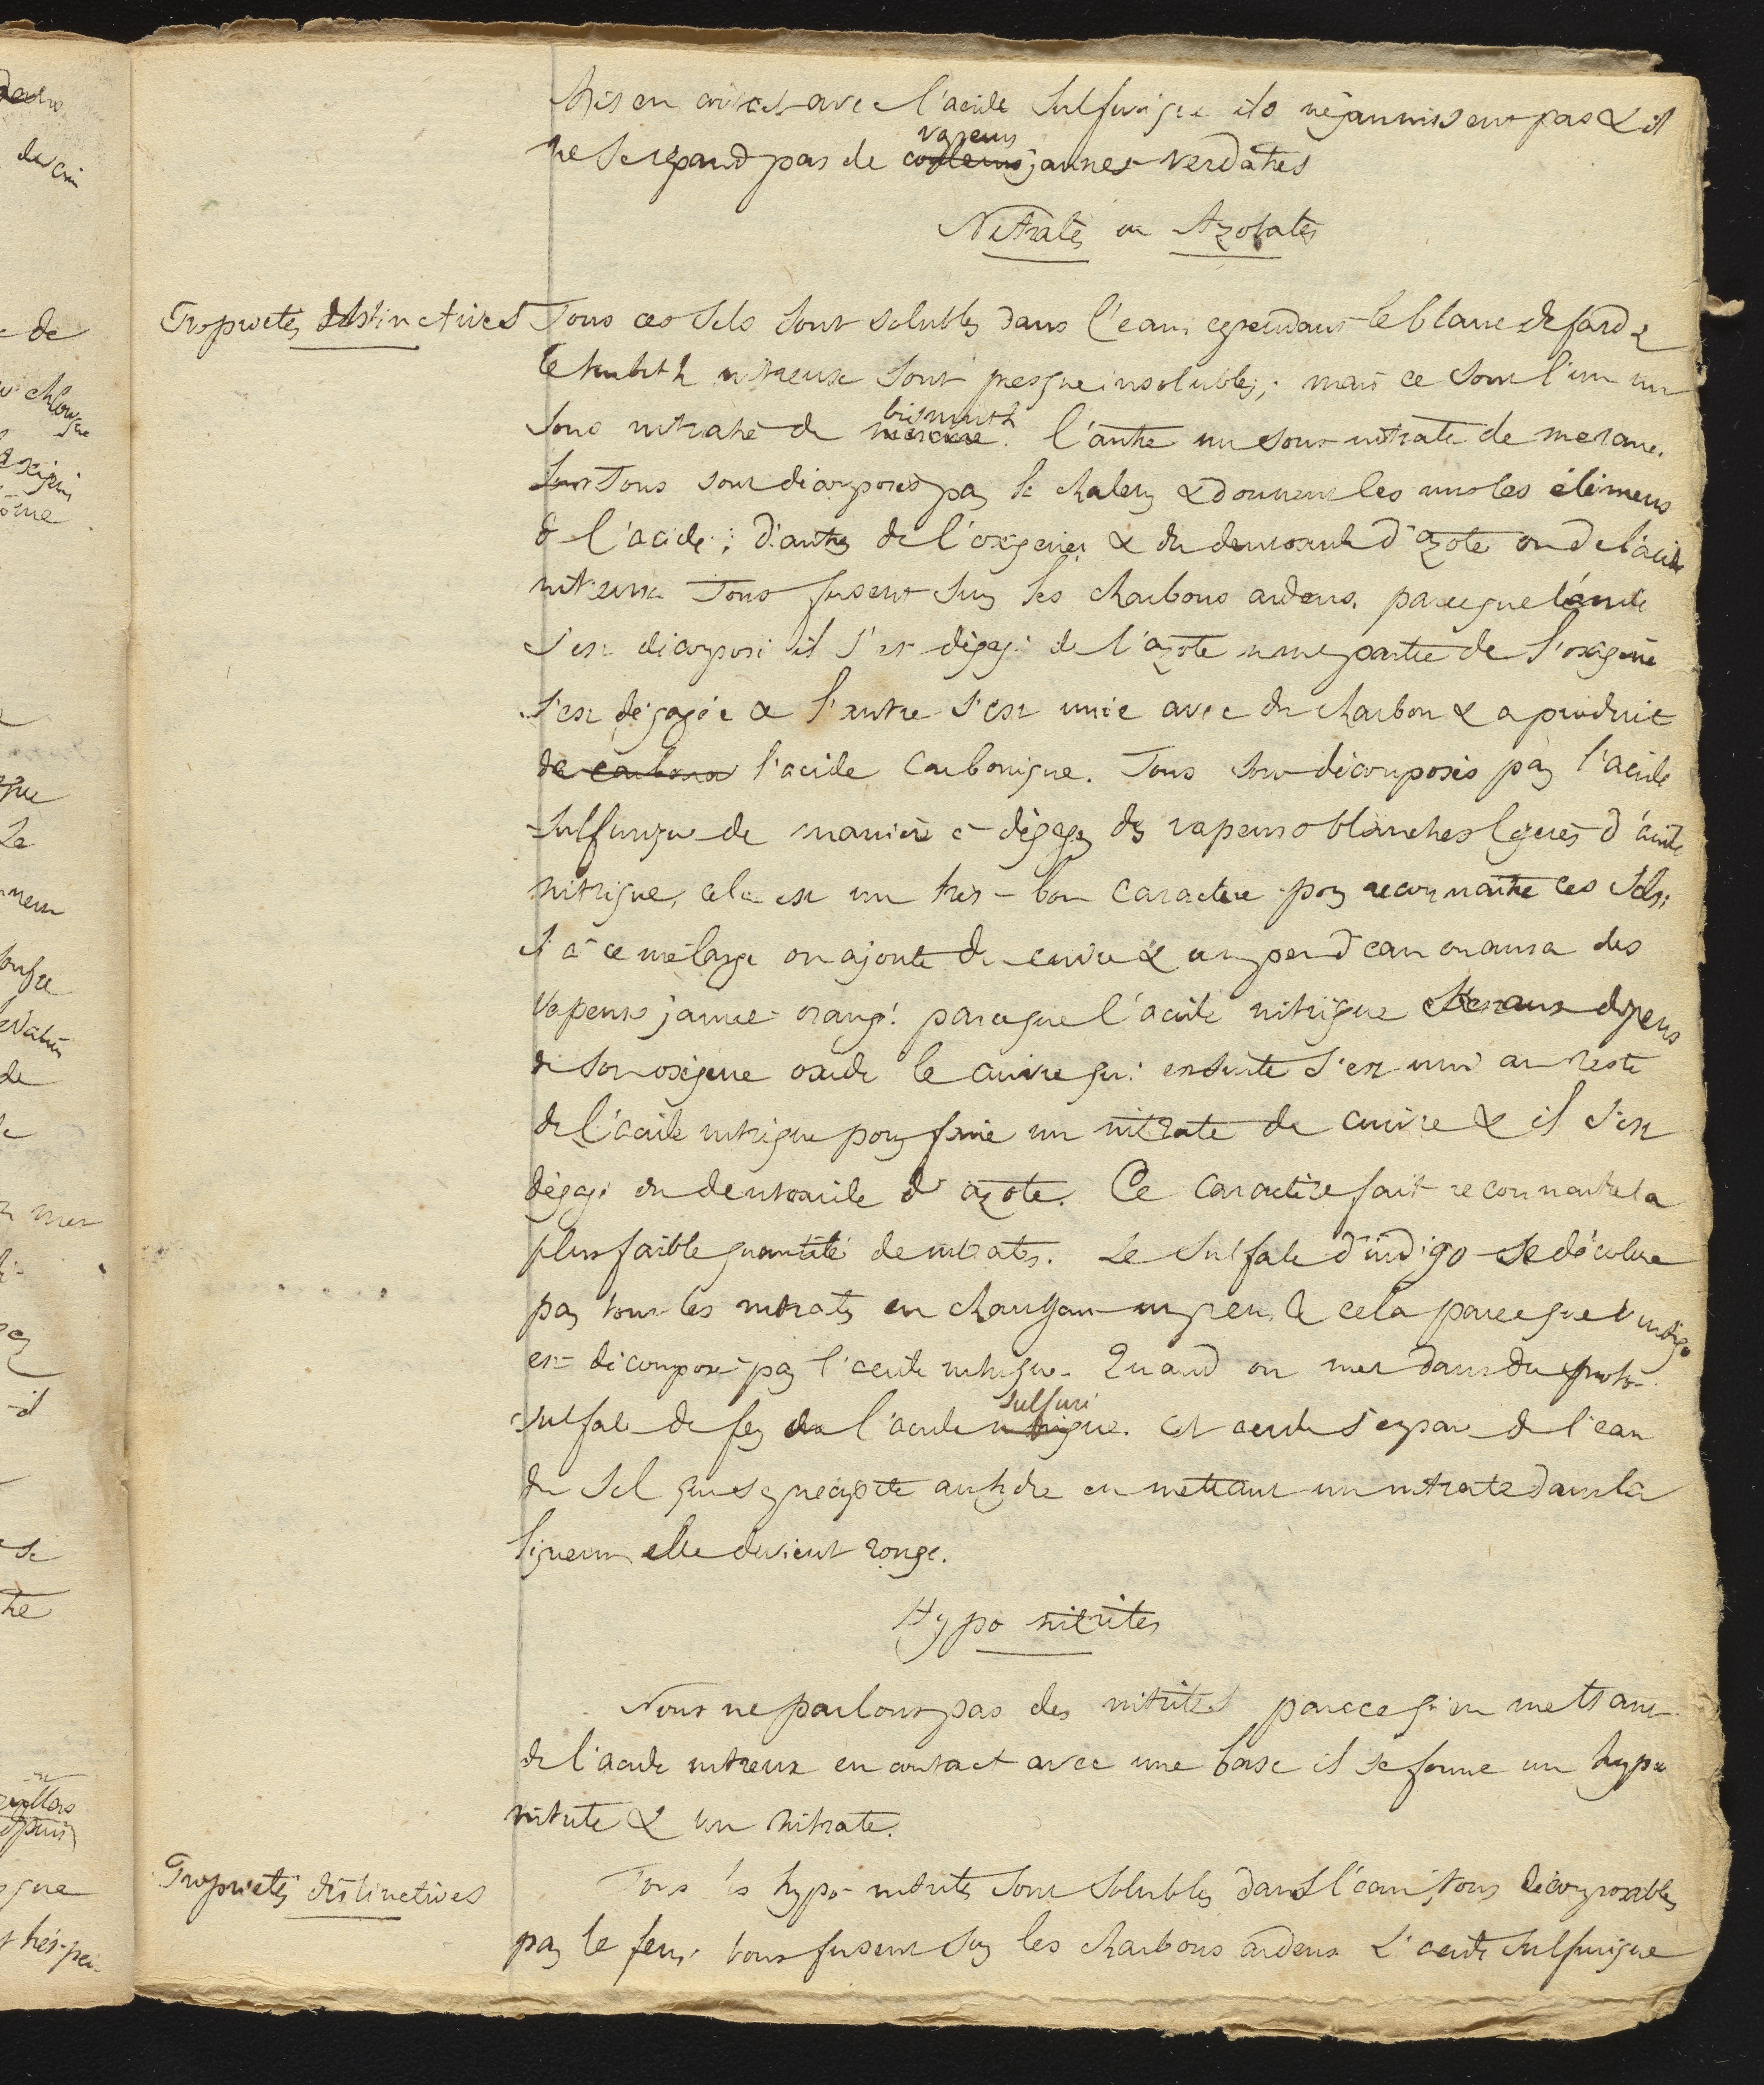 Mis en contact avec l'acide sulfurique ils ne jaunissent pas & il
ne se répand pas de couleurs vapeurs jaunes verdâtres
Nitrates ou Azotates
Propriétés distinctives
Tous ces sels sont solubles dans l'eau, cependant le blanc de fard &
le turbith nitreux sont presque insolubles; mais ce sont l'un un
sous nitrate de mercure bismuth. l'autre un sous-nitrate de mercure.
Tous sont décomposés par le chaleur & donnent les uns les élémens
de l'acide; d'autres de l'oxigène & du deutoxide d'azote ou de l'acide
nitreux Tous fusent sur les charbons ardens. parceque l'acide
s'est décomposé il s'est dégagé de l'azote une partie de l'oxigène
s'est dégagée & l'autre s'est unie avec du charbon & a produit
de carbone l'acide carbonique. Tous sont décomposés par l'acide
sulfurique de manière à dégager des vapeurs blanches légères d'acide
nitrique, cela est un très-bon caractère pour reconnaître ces sels;
si à ce mélange on ajoute du cuivre & un peu d'eau on aura des
vapeurs jaune-orangé. parceque l'acide nitrique aux dépens
de son oxigène oxide le cuivre qui ensuite s'est uni au reste
de l'acide nitrique pour faire un nitrate de cuivre & il s'est
dégagé du deutoxide d'azote. Ce caractère fait reconnaitre la
plus faible quantité de nitrates. Le sulfate d'indigo se décolore
par tous les nitrates en chauffant un peu, & cela parceque l'indigo
est décomposé par l'acide nitrique. Quand on met dans du proto-
sulfate de fer de l'acide nitrique sulfuri. Cet acide s'empare de l'eau
du sel qui se précipite anhydre en mettant un nitrate dans la
liqueur elle devient rouge.
Hypo nitrites
Nous ne parlons pas des nitrites parce qu'en mettant
de l'acide nitreux en contact avec une base il se forme un hypo
nitrite & un nitrate.
Propriétés distinctives
Tous les hypo-nitrites sont solubles dans l'eau, tous décomposables
par le feu; tous fusent sur les charbons ardens L'acide sulfurique